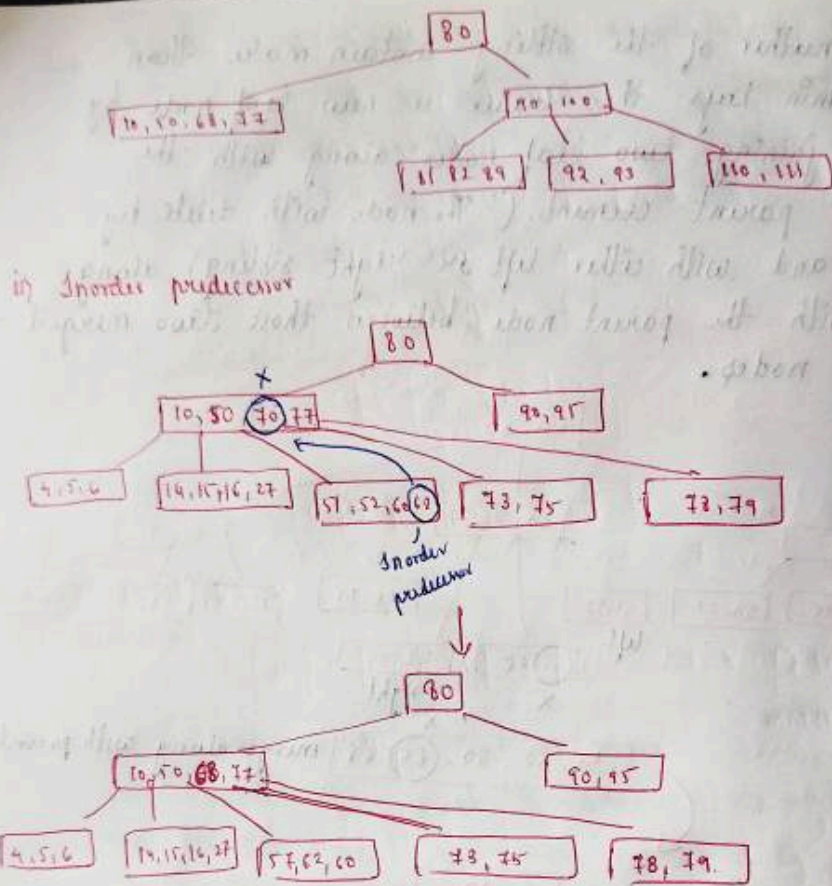 80
10, 50, 68, 77
90, 100
81 82 89
92, 93
110, 111
ii) Inorder predecessor
80
x
10, 50 70 77
90, 95
4, 5, 6
14, 15, 16, 27
73, 75
78, 79
Inorder
predecessor
80
10, 50, 68, 77
90, 95
4, 5, 6
14, 15, 16, 27
57, 62, 60
73, 75
78, 79.